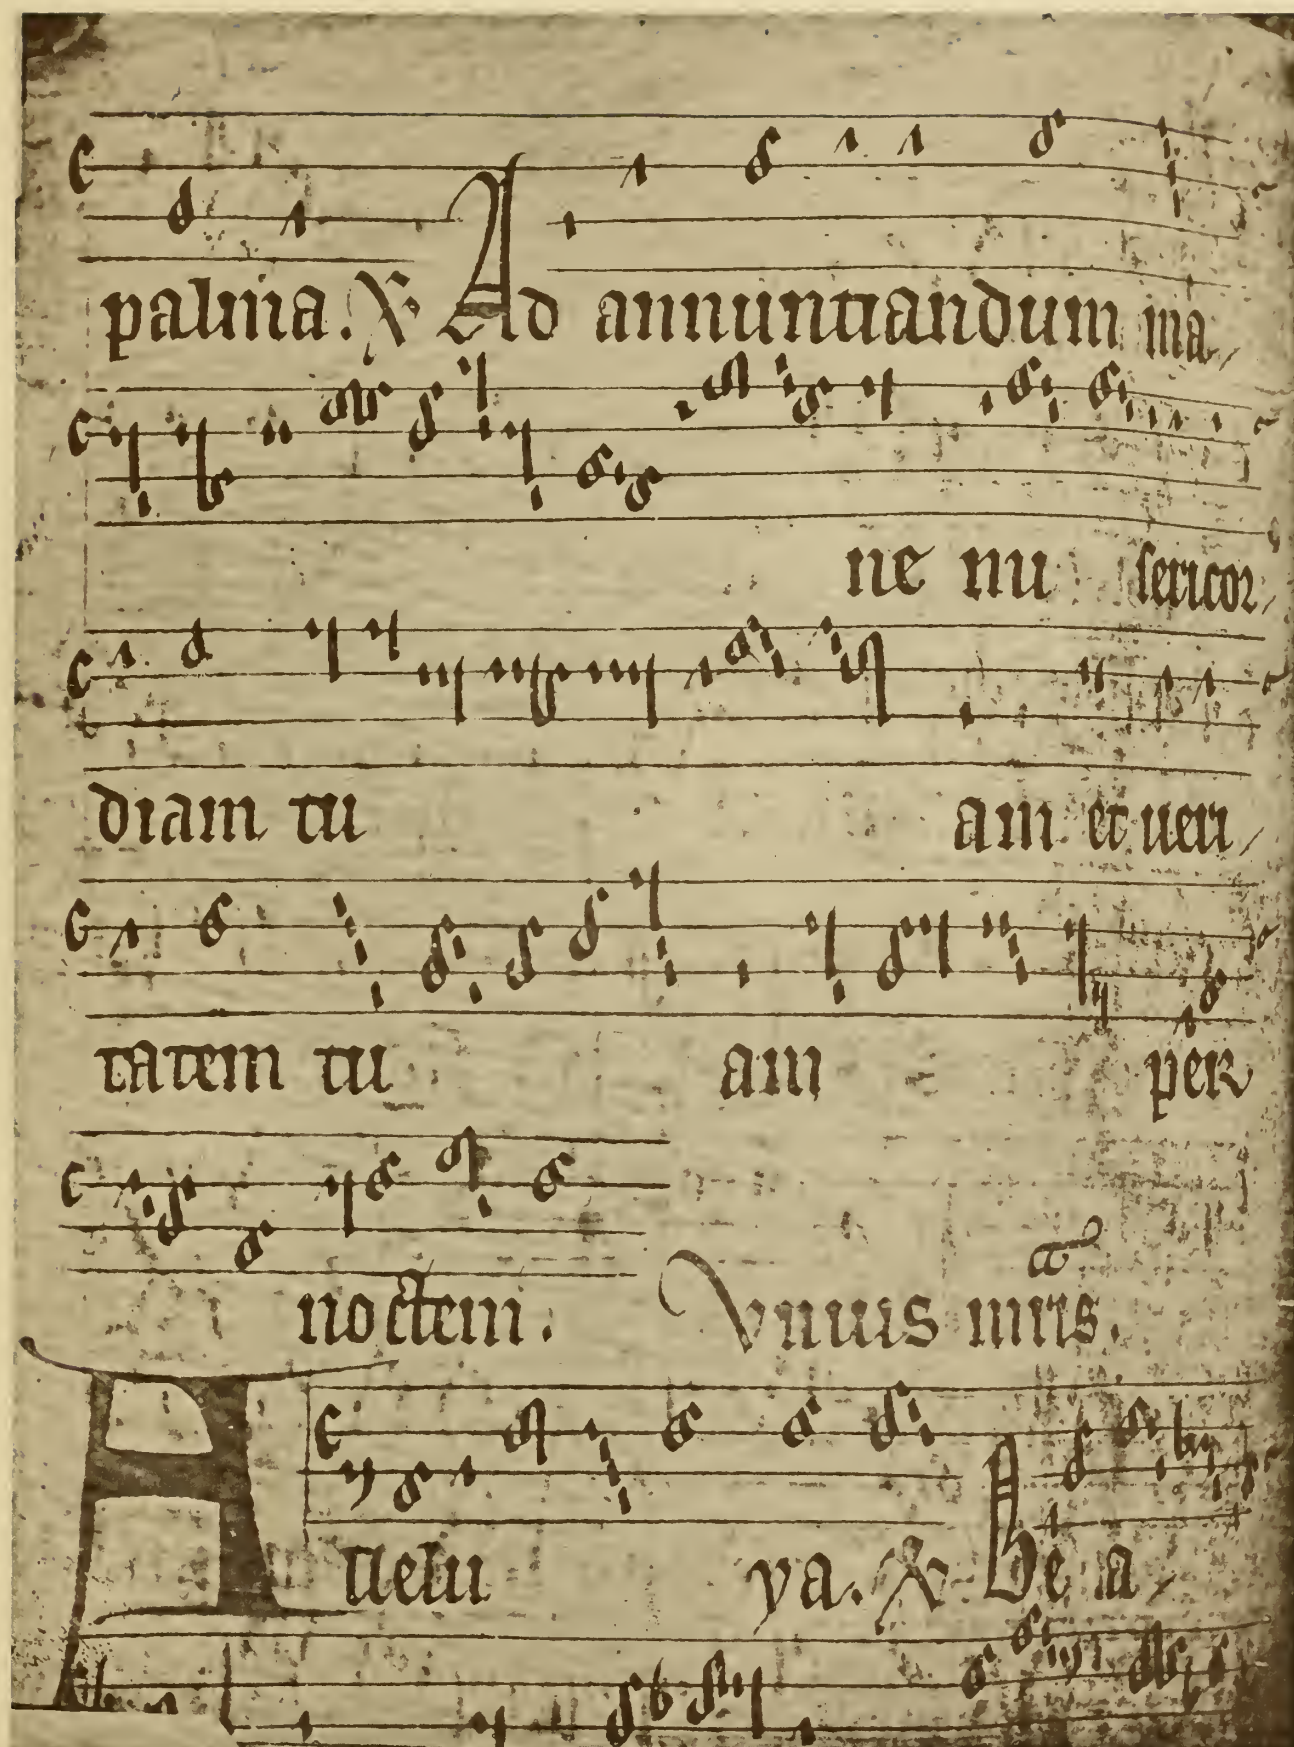 palma. ℣ Ad annuntiandum ma
ne mi sericor
diam tu am et ueri
tatem tu am per
noctem. Vnius mris.
Alleluya. ℣ Be a